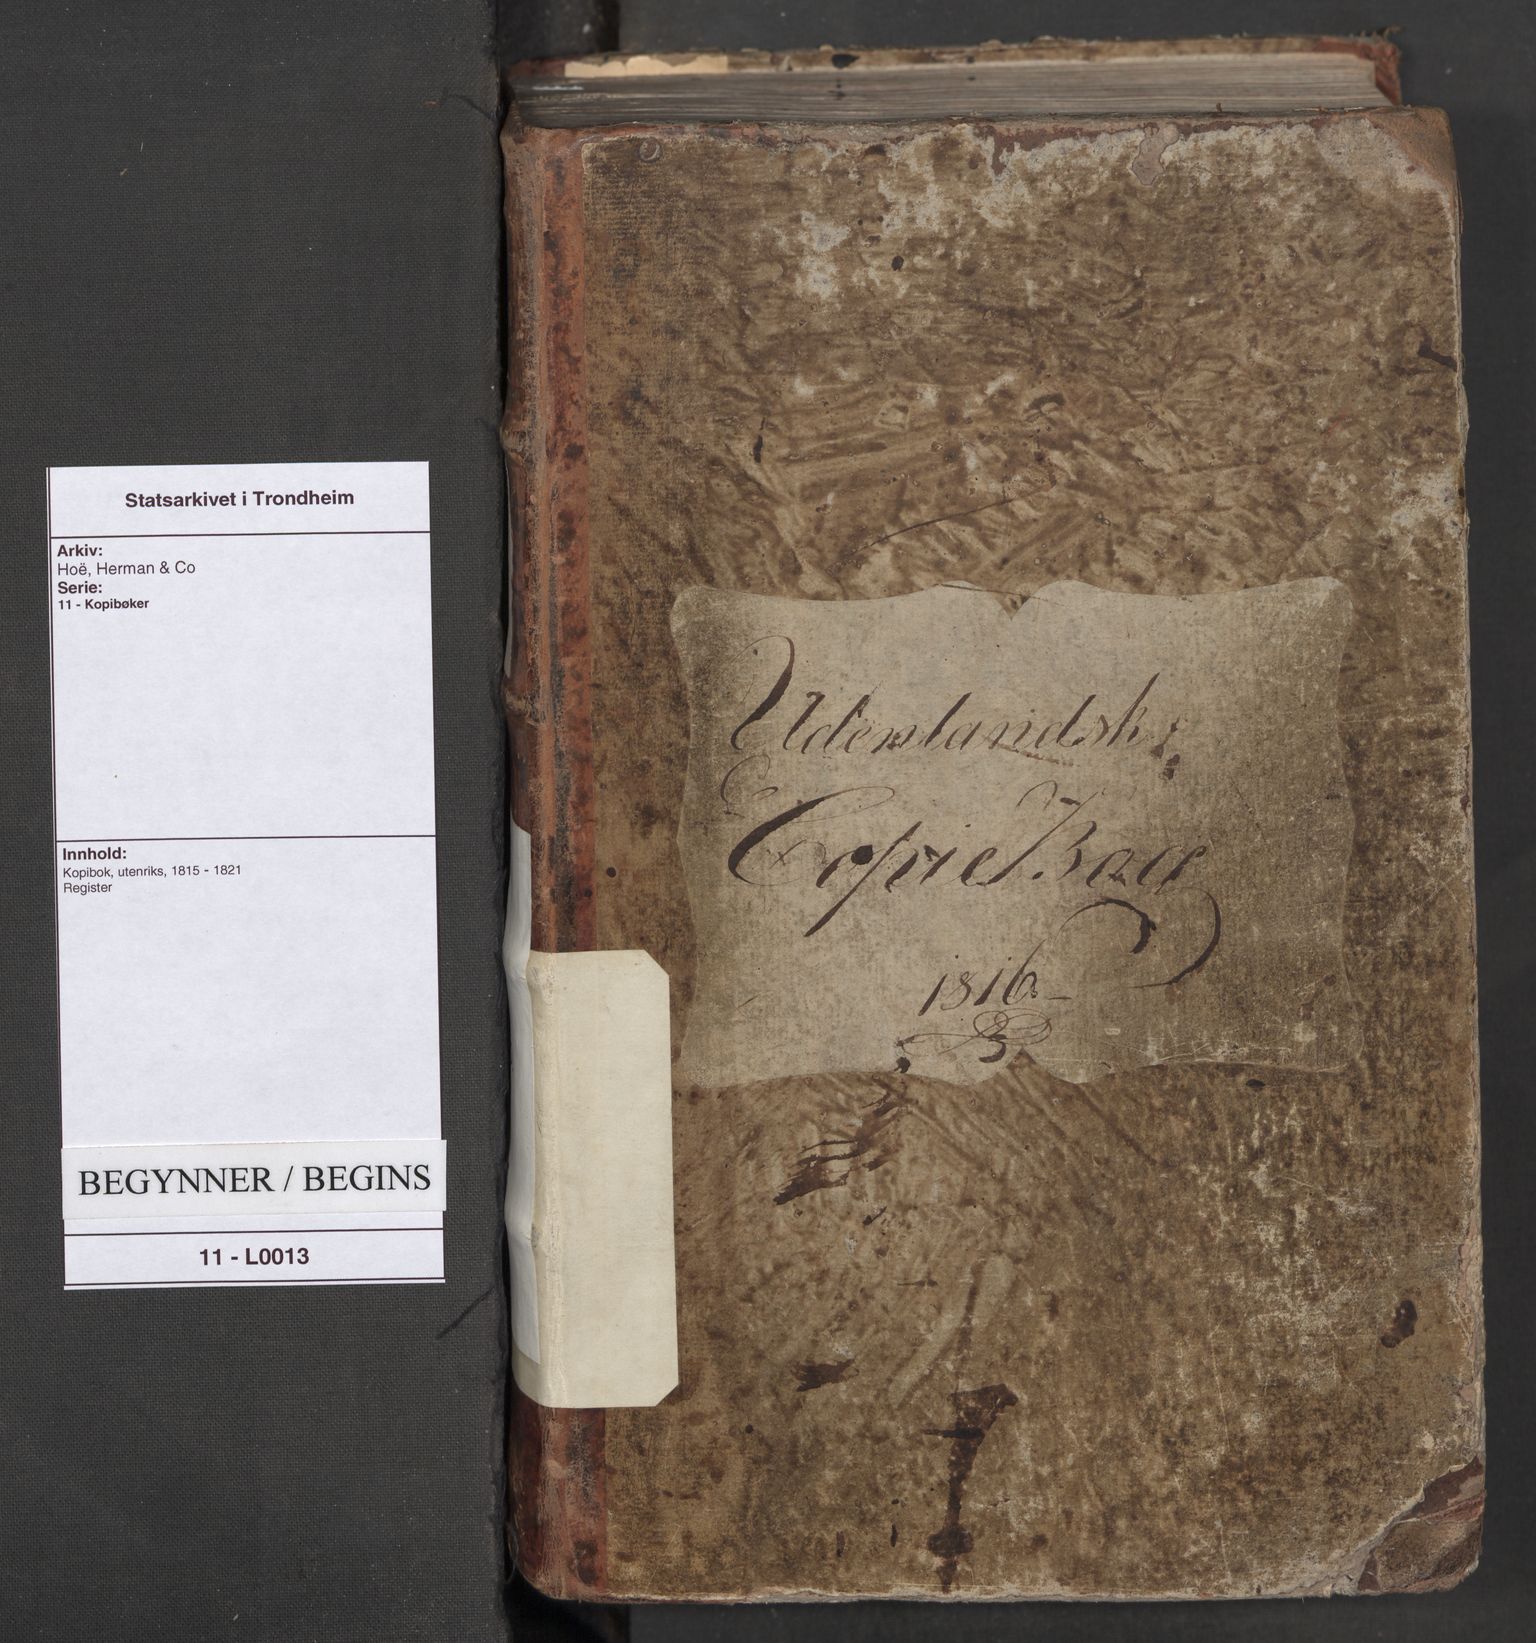 Statsarkivet i Trondheim
Arkiv:
Hoë, Herman & Co
Serie:
11 - Kopibøker
Innhold:
Kopibok, utenriks, 1815 - 1821
Register
BEGYNNER / BEGINS
11 - L0013
Udenlandsk
Copie Bog
1816